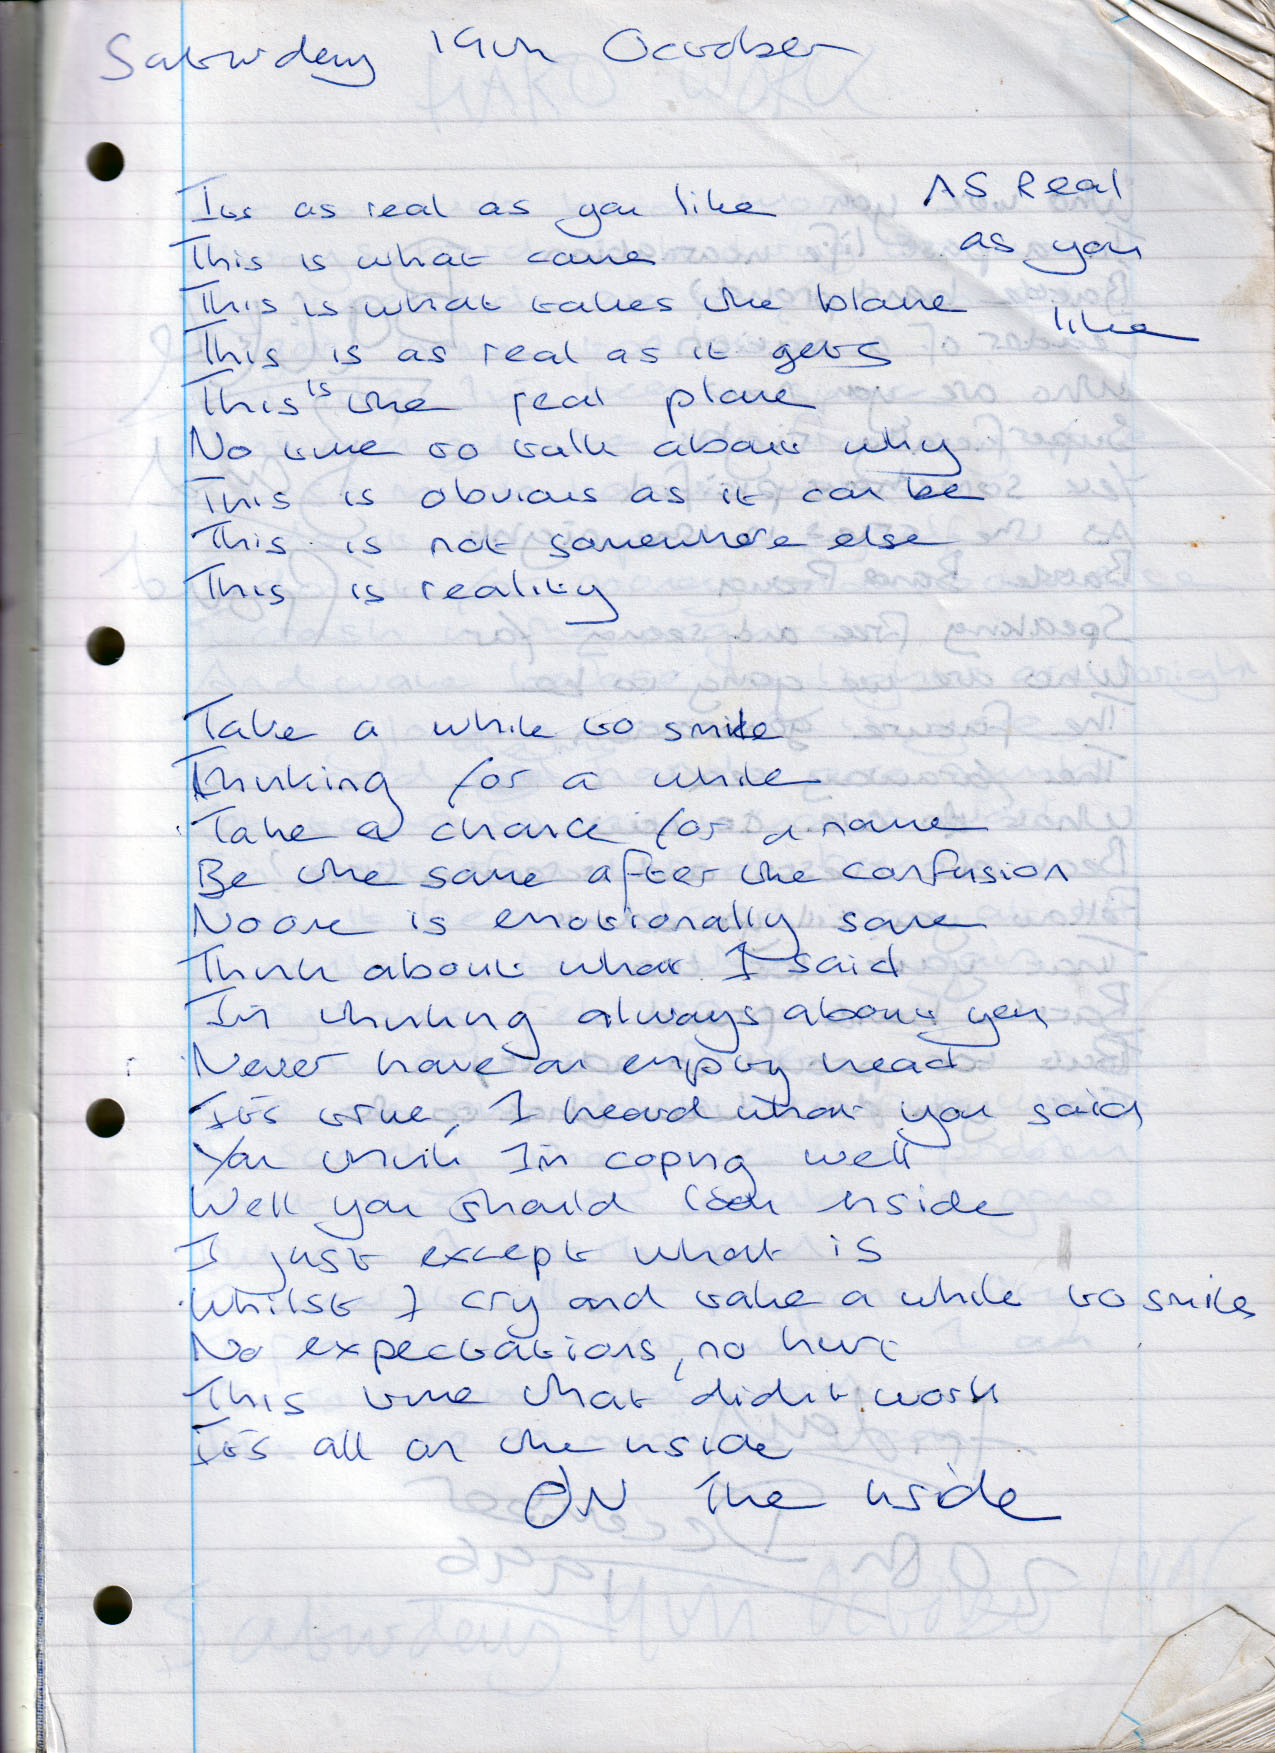 Saturday 19th October
Its as real as you like
AS Real
as you
like
This is what came
This is what takes the blame
This is as real as it gets
This is the real plane
No time to talk about why
This is obvious as it can be
This is not somewhere else
This is reality
Take a while to smile
Thinking for a while
Take a chance for a name
Be the same after the confusion
No one is emotionally sane
Think about what I said
I'm thinking always about you
Never have an empty head
It's true, I heard what you said
You think I'm coping well
Well you should look inside
I just except what is
Whilst I cry and take a while to smile
No expectations, no hurt
This time that didn't work
It's all on the inside
ON The inside